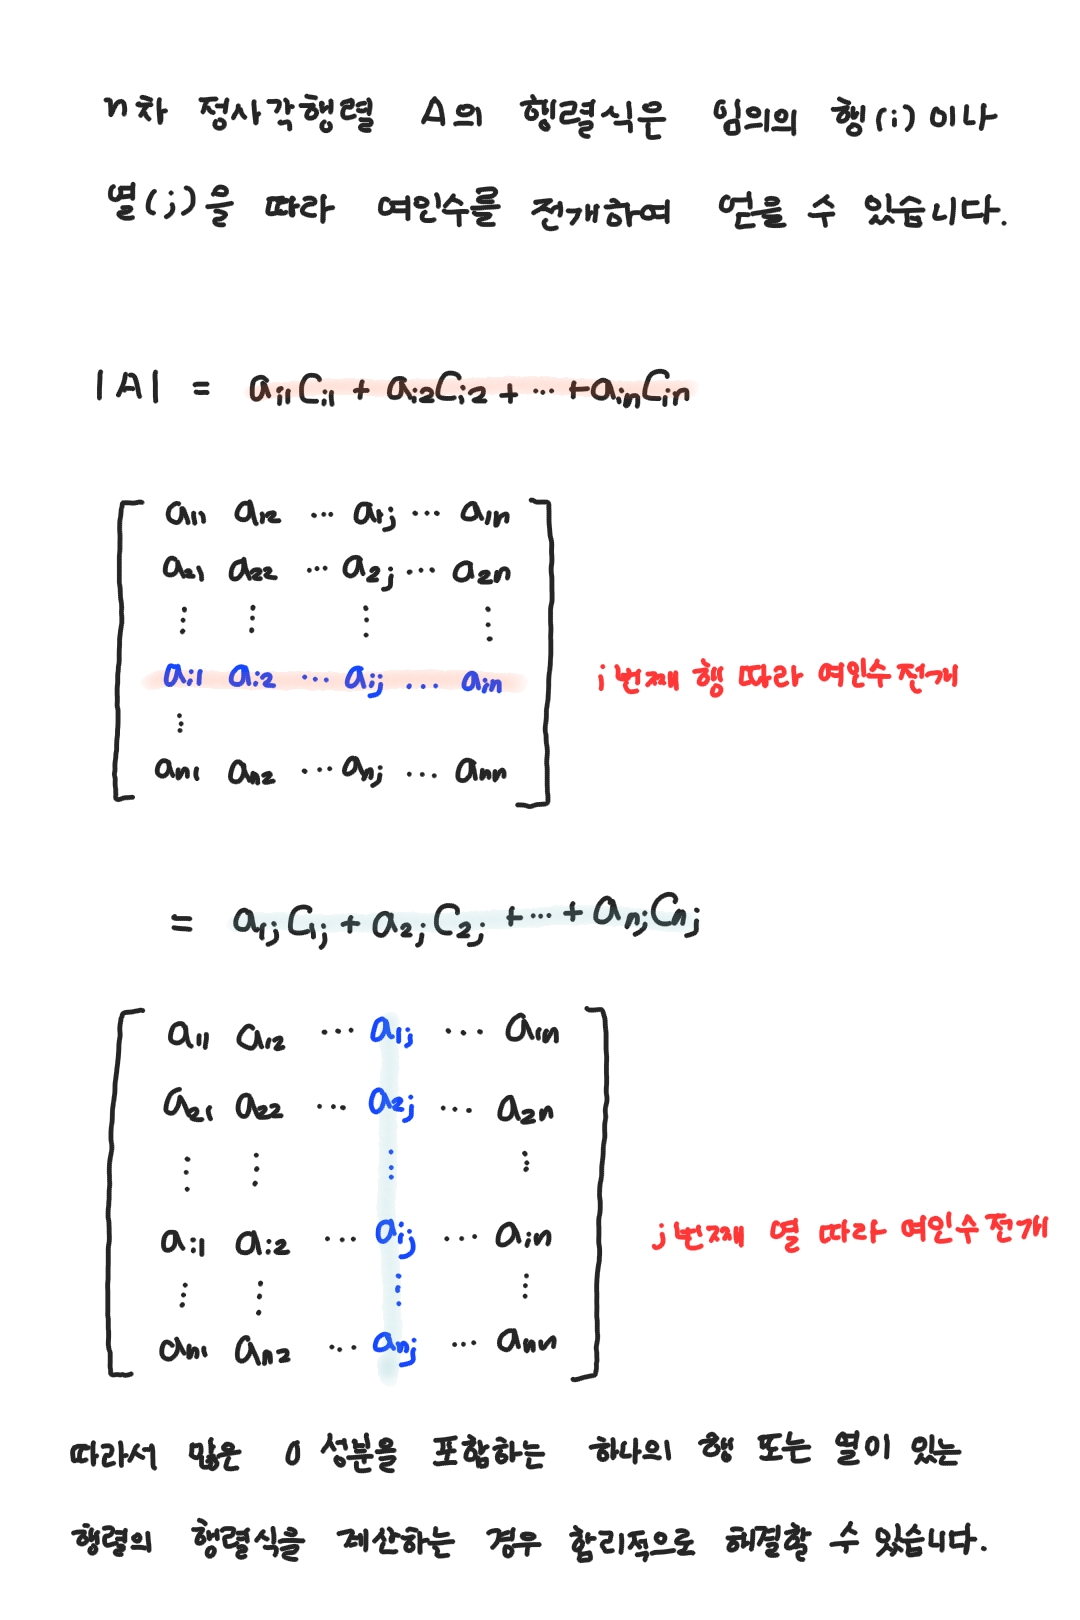 n차 정사각행렬 A의 행렬식은 임의의 행(i)이나
열(j)을 따라 여인수를 전개하여 얻을 수 있습니다.
|A| = ai1Ci1 + ai2Ci2 + ... + ainCin
a11 a12 ... a1j ... a1n
a21 a22 ... a2j ... a2n
⋮ ⋮ ⋮ ⋮
ai1 ai2 ... aij ... ain i번째 행 따라 여인수전개
⋮
an1 an2 ... anj ... ann
= a1jC1j + a2jC2j + ... + anjCnj
a11 a12 ... a1j ... a1n
a21 a22 ... a2j ... a2n
⋮ ⋮ ⋮ ⋮
ai1 ai2 ... aij ... ain j번째 열 따라 여인수전개
⋮ ⋮ ⋮ ⋮
an1 an2 ... anj ... ann
따라서 많은 0 성분을 포함하는 하나의 행 또는 열이 있는
행령의 행렬식을 계산하는 경우 합리적으로 해결할 수 있습니다.